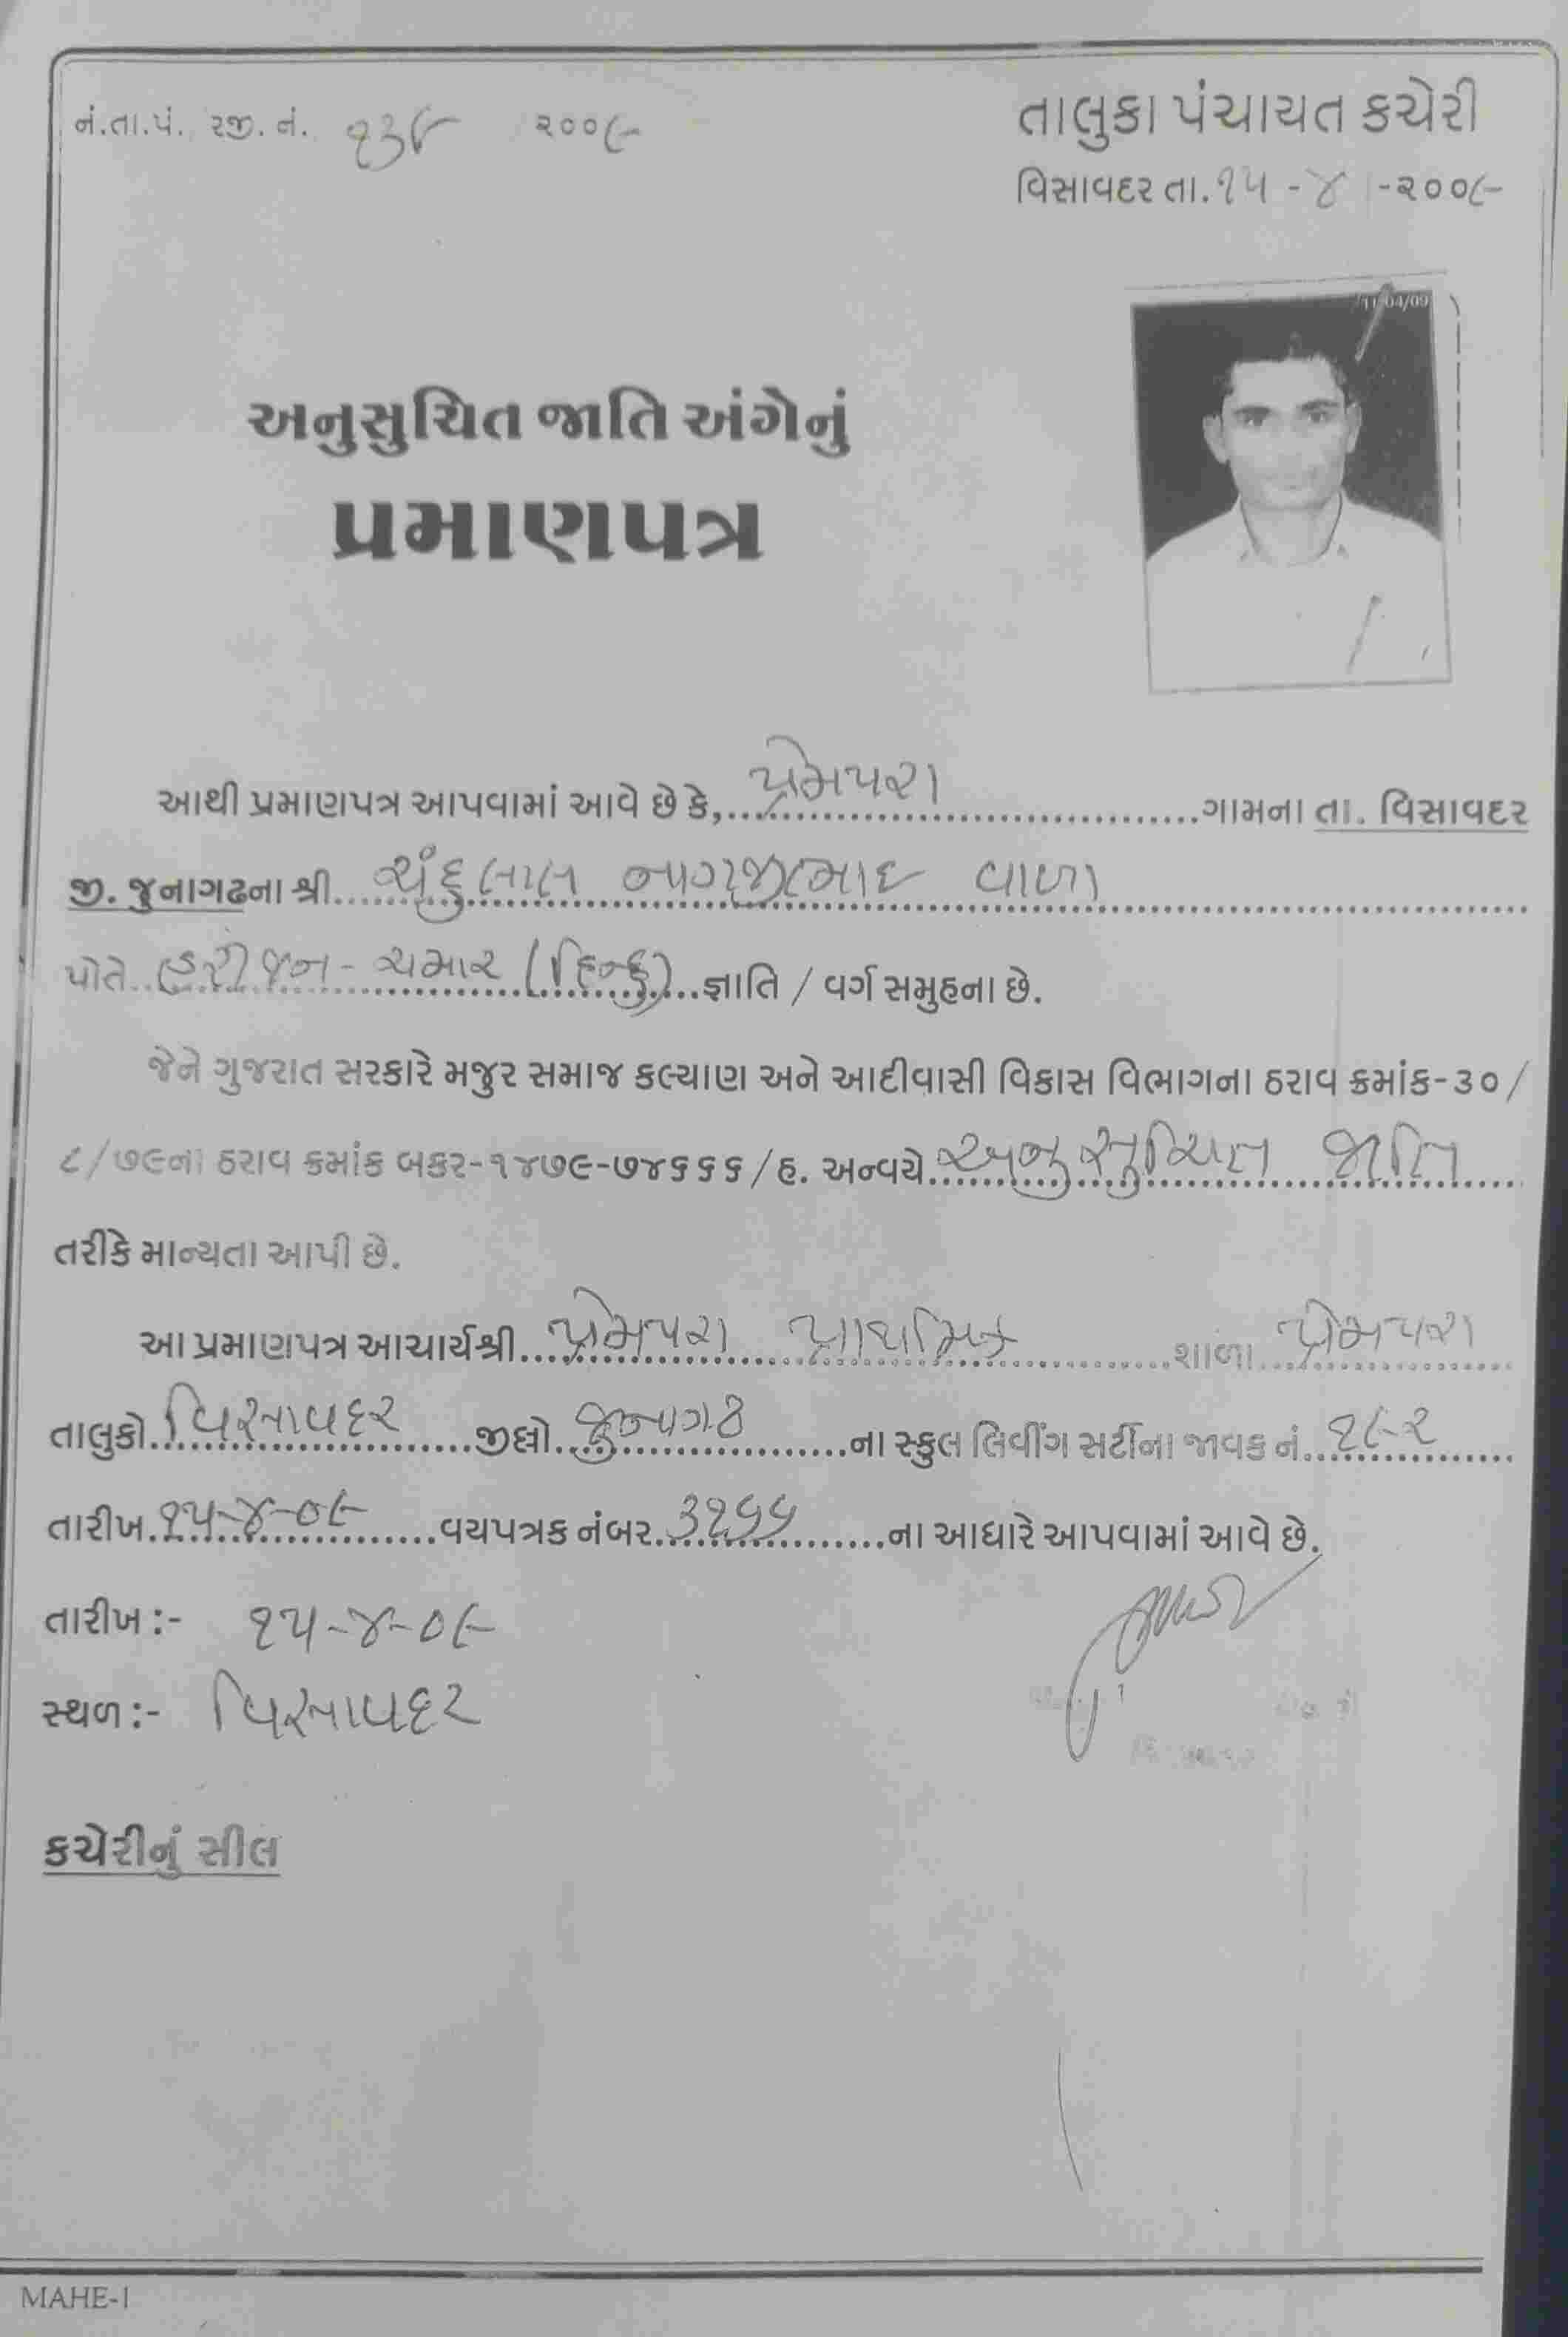 નં.તા.પં. રજી. નં. ૨૦૦૯
તાલુકા પંચાયત કચેરી
વિસાવદર તા. ૧૫ - ૪ -૨૦૦૯
11/04/09
અનુસુચિત જાતિ અંગેનું
પ્રમાણપત્ર
આથી પ્રમાણપત્ર આપવામાં આવે છે કે,....પ્રેમપરા....ગામના તા. વિસાવદર
જી. જુનાગઢના શ્રી....ચંદુલાલ નાગજીભાઇ વાળા....
પોતે....હરીજન - ચમાર (હિન્દુ)....જ્ઞાતિ / વર્ગ સમુહના છે.
જેને ગુજરાત સરકારે મજુર સમાજ કલ્યાણ અને આદીવાસી વિકાસ વિભાગના ઠરાવ ક્રમાંક-૩૦/
૮/૭૯ના ઠરાવ ક્રમાંક બકર-૧૪૭૯-૭૪૬૬૬/હ. અન્વયે....અનુસુચિત જાતિ....
તરીકે માન્યતા આપી છે.
આ પ્રમાણપત્ર આચાર્યશ્રી....પ્રેમપરા પ્રાથમિક....શાળા....પ્રેમપરા....
તાલુકો....વિસાવદર....જીલ્લો....જુનાગઢ....ના સ્કુલ લિવીંગ સર્ટીના જાવક નં....૧૯૨....
તારીખ....૧૫-૪-૦૯....વયપત્રક નંબર....૩૧૬૬....ના આધારે આપવામાં આવે છે.
તારીખ :- ૧૫-૪-૦૯
સ્થળ :- વિસાવદર
કચેરીનું સીલ
MAHE-1